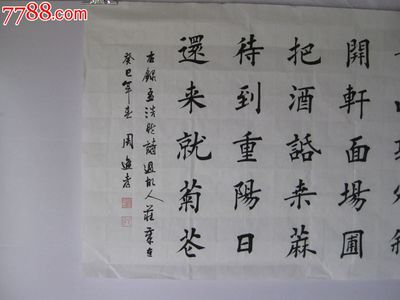 7788.com
開軒面場圃
把酒話桒蔴
待到重陽日
還来就菊花
右録孟浩然詩過故人莊
癸巳年春 周